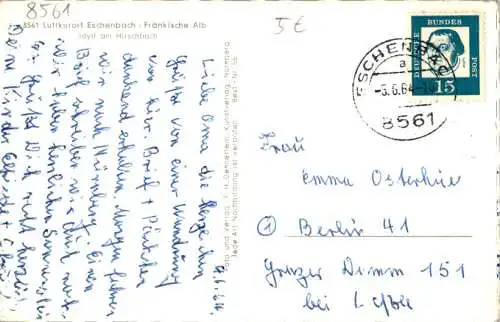 8561
8561 Luftkurort Eschenbach · Fränkische Alb
Idyll am Hirschbach
5€
DEUTSCHE
BUNDES
POST
15
ESCHENBACH
a
-5.6.64-10
8561
Frau
Emma Osterhue
1 Berlin 41
Grazer Damm 151
bei
6.6.64
Liebe Oma die herzlichen
Grüße von einer Wanderung
von hier. Brief + Päckchen
dankend erhalten. Morgen fahren
wir nach Nürnberg. Einen
Brief schreiben wir Dich noch.
Wir haben herrlichen Sonnenschein
Es grüßt Dich recht herzlich
Deine Kinder